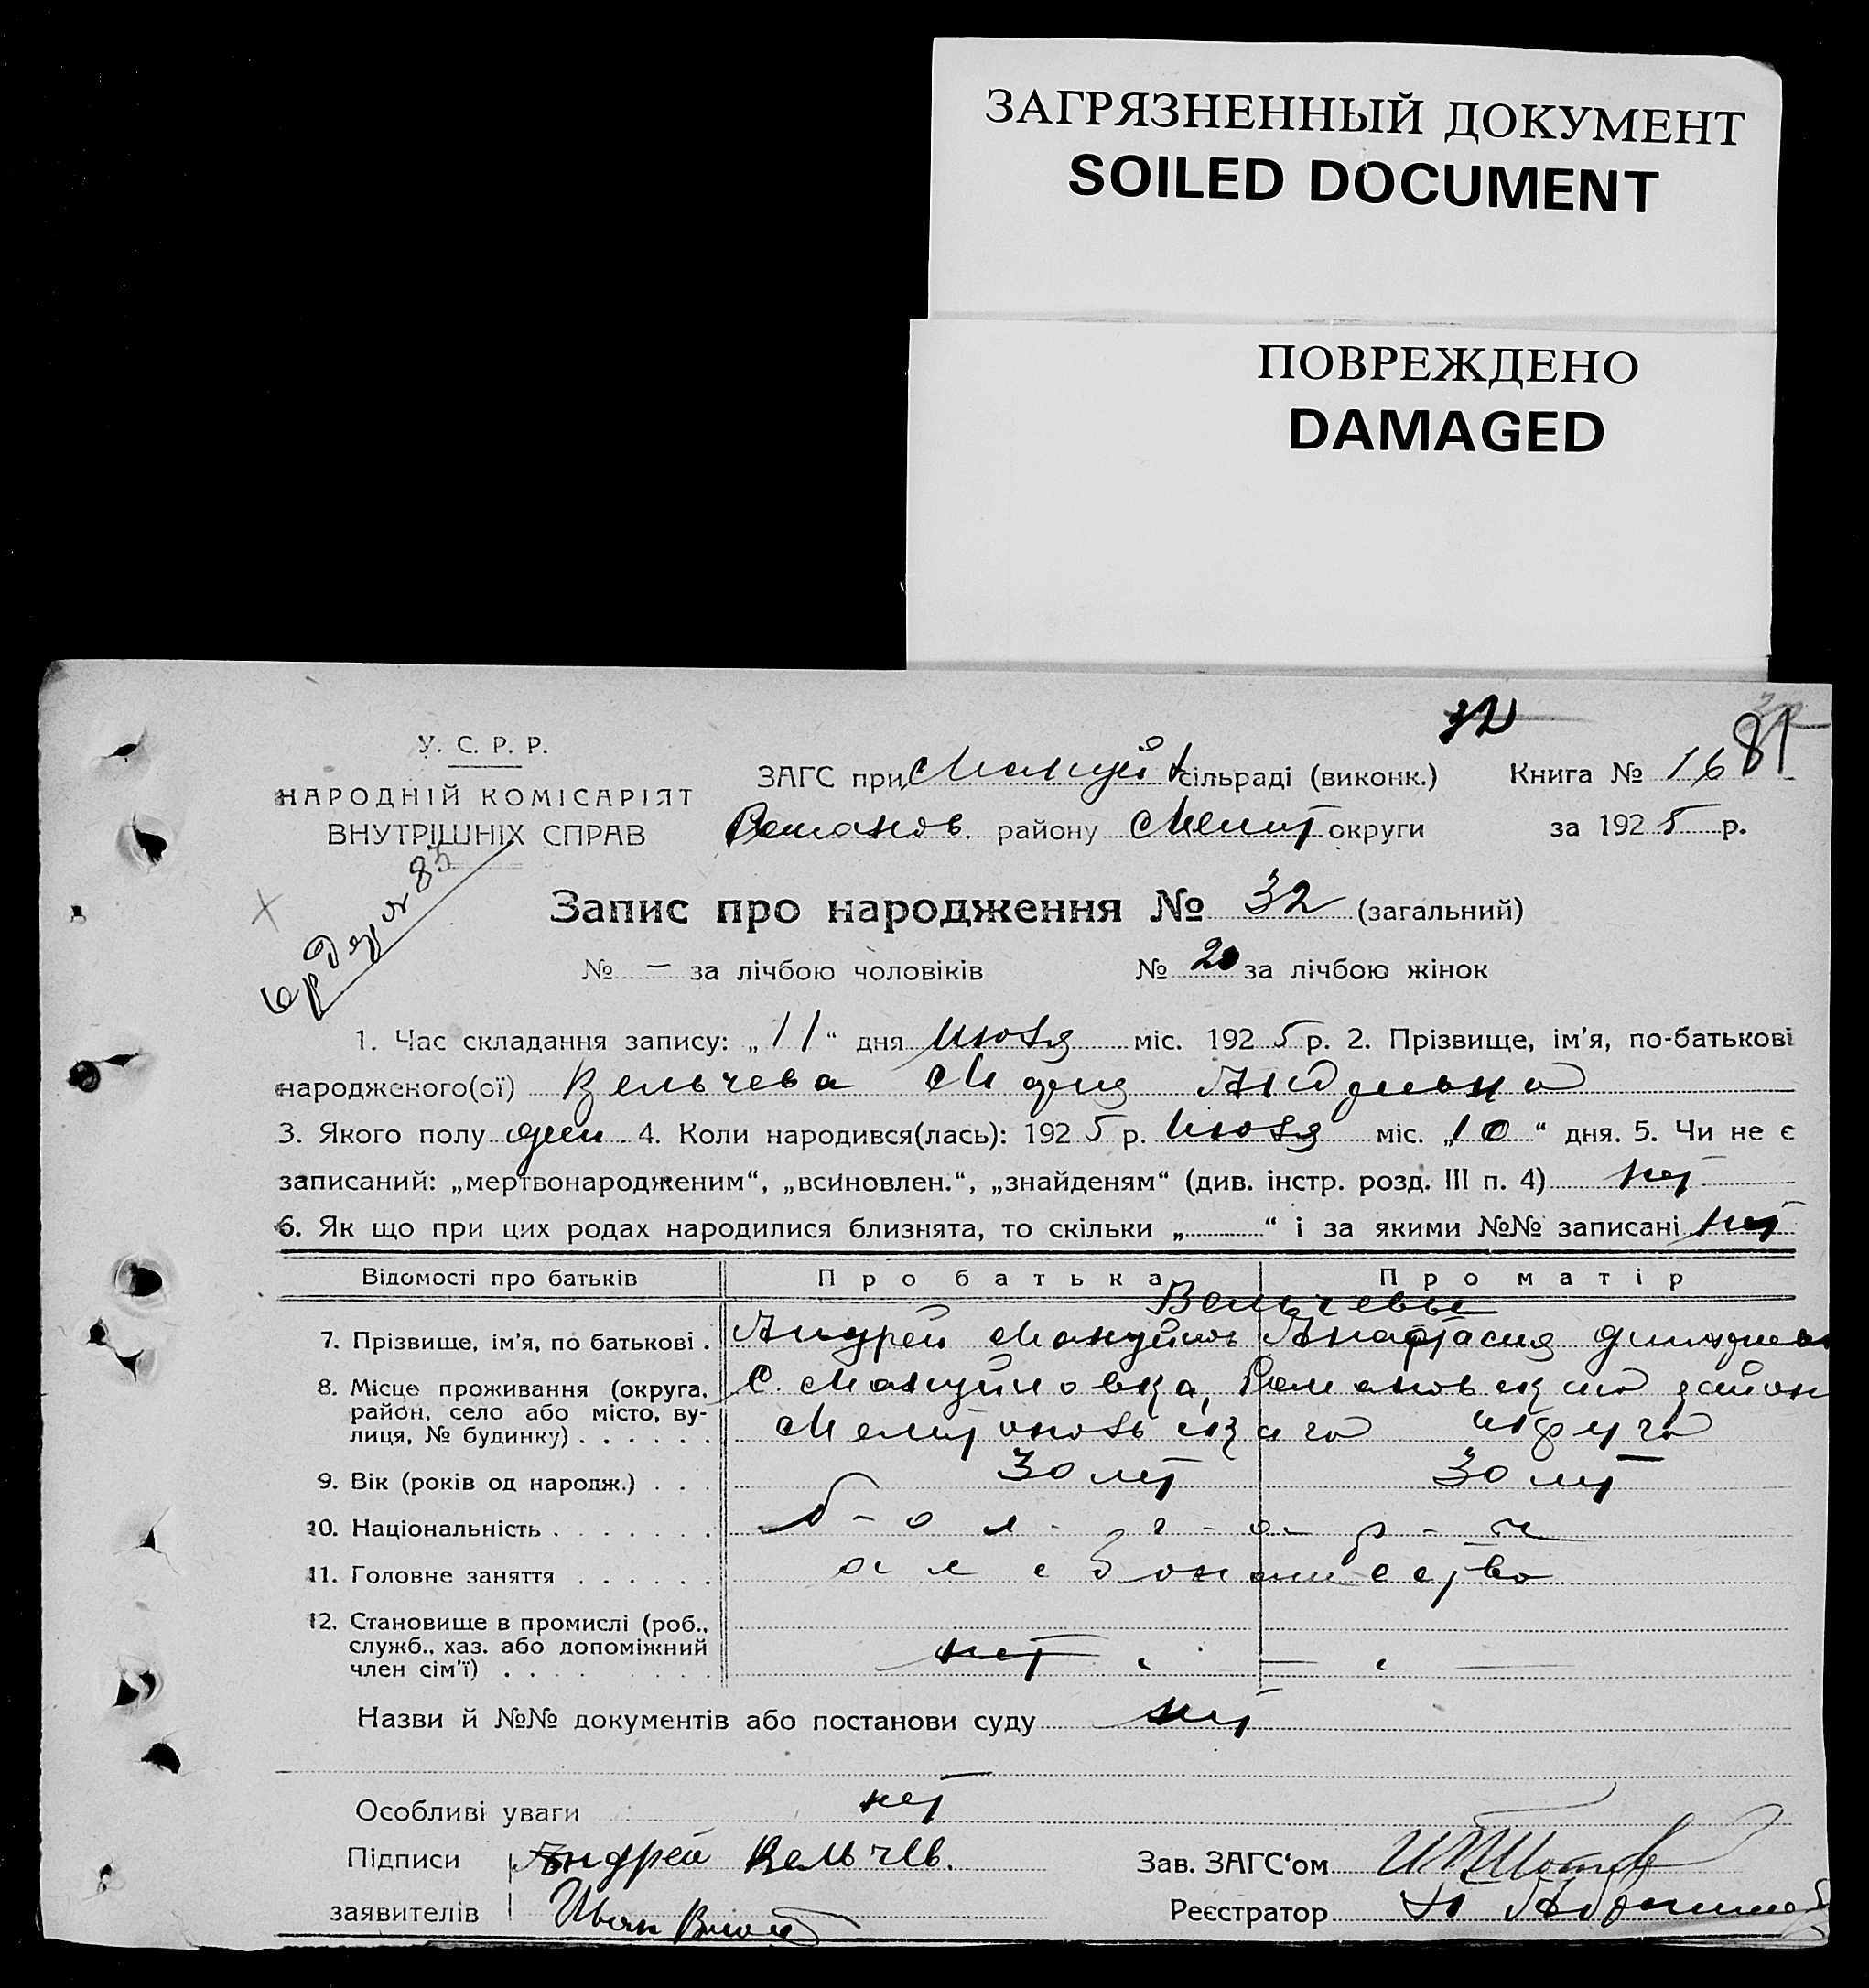 ЗАГРЯЗНЕННЫЙ ДОКУМЕНТ
SOILED DOCUMENT
ПОВРЕЖДЕНО
DAMAGED
32
81
У. С. Р. Р.
НАРОДНІЙ КОМІСАРІЯТ
ВНУТРІШНІХ СПРАВ
ЗАГС при Мануй сільраді (виконк.) Книга № 16
Романов. району Мелит округи за 1925 р.
85
Запис про народження № 32 (загальний)
№ — за лічбою чоловіків № 20 за лічбою жінок
1. Час складання запису: „11“ дня Июля міс. 1925 р. 2. Прізвище, ім'я, по-батькові
народженого(ої) Вельчева Мария Андреевна
3. Якого полу жен 4. Коли народився(лась): 1925 р. Июля міс. „10“ дня. 5. Чи не є
записаний: „мертвонародженим“, „всиновлен.“, „знайденям“ (див. інстр. розд. III п. 4) нет
6. Як що при цих родах народилися близнята, то скільки „ “ і за якими №№ записані нет
Відомості про батьків Про батька Про матір
Вельчевы
7. Прізвище, ім'я, по батькові . Андрей Мануйлов Анастасия
8. Місце проживання (округа, С. Мануйловка, Романовского район
район, село або місто, ву-
лиця, № будинку) . . . . . . Мелитопольского округа
9. Вік (років од народж.) . . . 30 лет 30 лет
10. Національність . . . . . . . б-о-л-г-а-р-и
11. Головне заняття . . . . . . хлебопашество
12. Становище в промислі (роб.,
служб., хаз. або допоміжний
член сім'ї) . . . . . . . . . нет
Назви й №№ документів або постанови суду нет
Особливі уваги нет
Підписи Андрей Вельчев. Зав. ЗАГС'ом
заявителів Иван Реєстратор